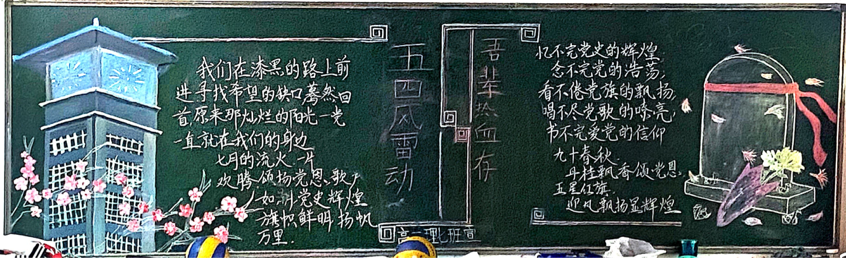 我们在漆黑的路上前
进寻找希望的缺口蓦然回
首原来那灿烂的阳光一党
一直就在我们的身边
七月的流火一片
欢腾颂扬党恩歌声
如潮党史辉煌
旗帜鲜明扬帆
万里.
五四风雷动
吾辈热血存
高一理七班宣
忆不完党史的辉煌,
念不完党的浩荡,
看不倦党旗的飘扬,
唱不尽党歌的嘹亮,
书不完爱党的信仰
九十春秋.
丹桂飘香颂党恩
五星红旗.
迎风飘扬显辉煌